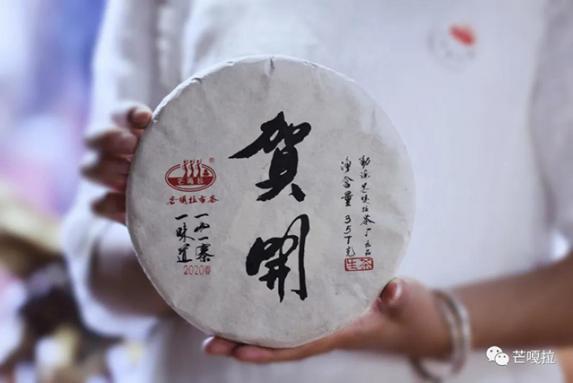 賀開
芒嘎拉
®
芒嘎拉古茶
一山一寨
一味道
2020年
勐海芒嘎拉茶厂出品
净含量357克
生茶
芒嘎拉